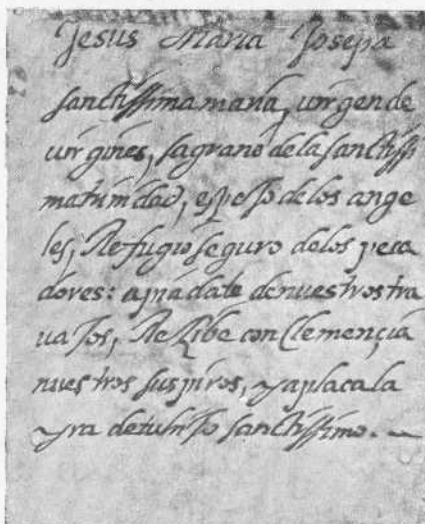 Jesus Maria Josepa
sanctissima maria, virgen de
virgines, sagrario de la sanctissi
ma trinidad, espejo de los ange
les, Refugio seguro de los peca
dores: apiadate de nuestros tra
vajos, Rezibe con Clemençia
nuestros suspiros, y aplaca la
yra de tu hijo sanctissimo.